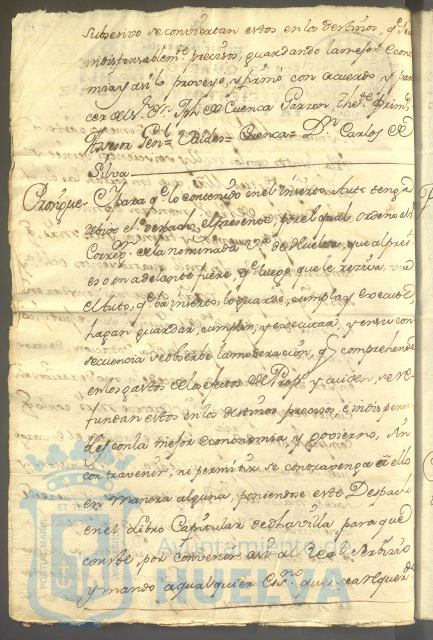 subcesivo se conviertan estos en los destinos, q.e sean
indispensablem.te precisos, guardando la mejor econo
mia y así lo proveyo, y firmó con acuerdo y pare
cer del S.r D.n de Cuenca Garzon, the.te Primro
Asesor Gen.l Calder= Cuenca= D.n Carlos de
Silva
Prosigue. Y para q.e lo contenido en el inserto Auto tenga
debido ef.to despacho el presente, por el qual ordeno al
Correg.or de la nominada v.a de Huelva, que al pres
te es o en adelante fuere, q.e luego que le reziva, vea
el Auto, q.e ba inserto, lo guarde, cumpla, y execute,
hagan guardar, cumplir, y executar, y en su con
secuencia se observe la moderacion, q.e comprehende
en los gastos de los efectos de Prop.s y
fundan estos en los destinos precisos, e indispensa
bles con la mejor economia y govierno, sin
contravenir, ni permitir se contravenga a ello
en manera alguna, poniendose este Despacho
en el Libro Capitular de dha villa, para que
conste, por convenir asi al Real servicio
y mando a qualquier Es.no que sea requerido
Ayuntamiento de
HUELVA